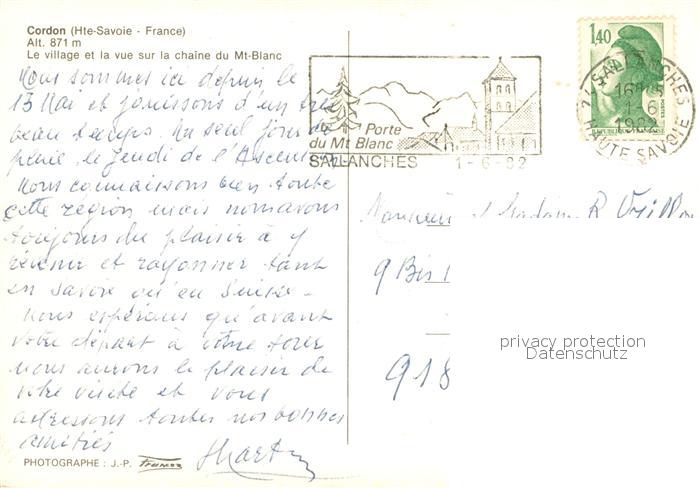 Cordon (Hte-Savoie - France)
Alt. 871 m
Le village et la vue sur la chaîne du Mt-Blanc
Nous sommes ici depuis le
13 Mai et jouissons d'un très
beau temps. Un seul jour de
pluie, le jeudi de l'Ascension
Nous connaissons bien toute
cette région mais nous avons
toujours du plaisir à y
revenir et rayonner tant
en Savoie qu'en Suisse -
Nous espérons qu'avant
votre départ à votre tour
nous aurons le plaisir de
votre visite et vous
adressons toutes nos bonnes
amitiés
PHOTOGRAPHE : J.-P.
Porte
du Mt Blanc
SALLANCHES 1-6-82
1,40
POSTES
74 SALLANCHES
16H15
1-6
1982
HAUTE SAVOIE
Monsieur et Madame R
9 Bis
918
privacy protection
Datenschutz